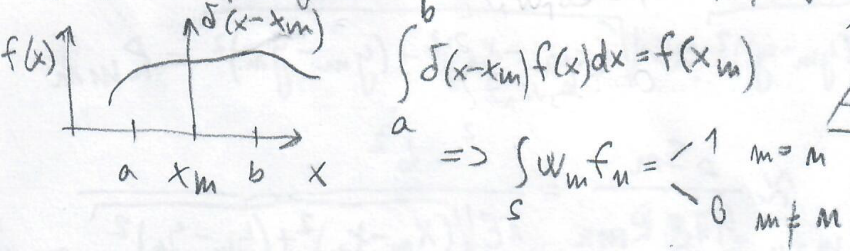 f(x) δ(x-xₘ)
a xₘ b x
∫ₐᵇ δ(x-xₘ) f(x) dx = f(xₘ)
=> ∫ₛ wₘ fₙ = 1 m = n
0 m ≠ n